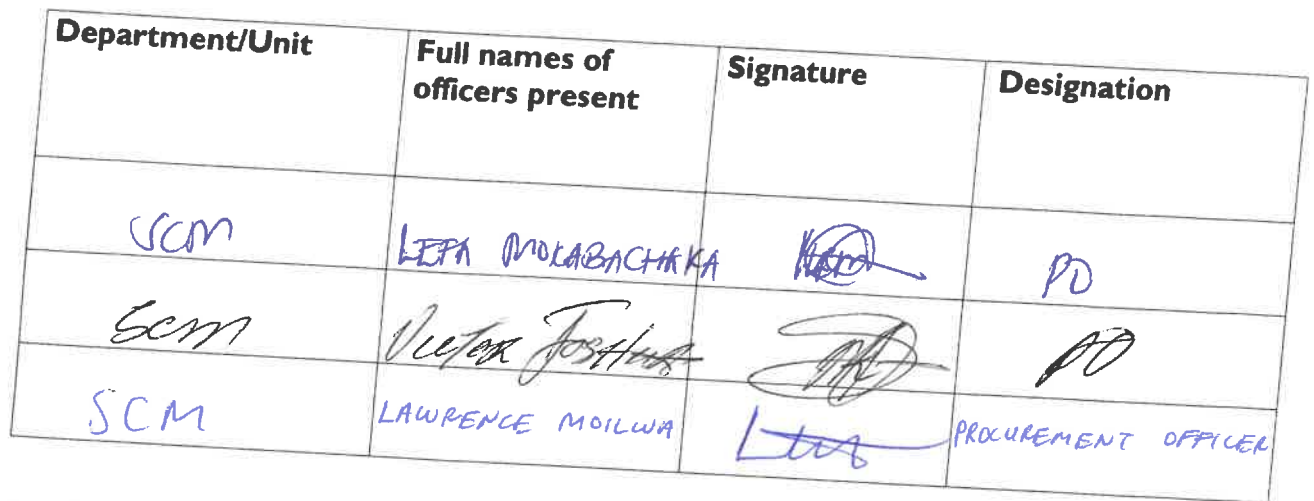 Department/Unit
Full names of
officers present
Signature
Designation
SCM
LEFA MOKABACHAKA
PO
SCM
VICTOR JOSHUA
PO
SCM
LAWRENCE MOILWA
PROCUREMENT OFFICER